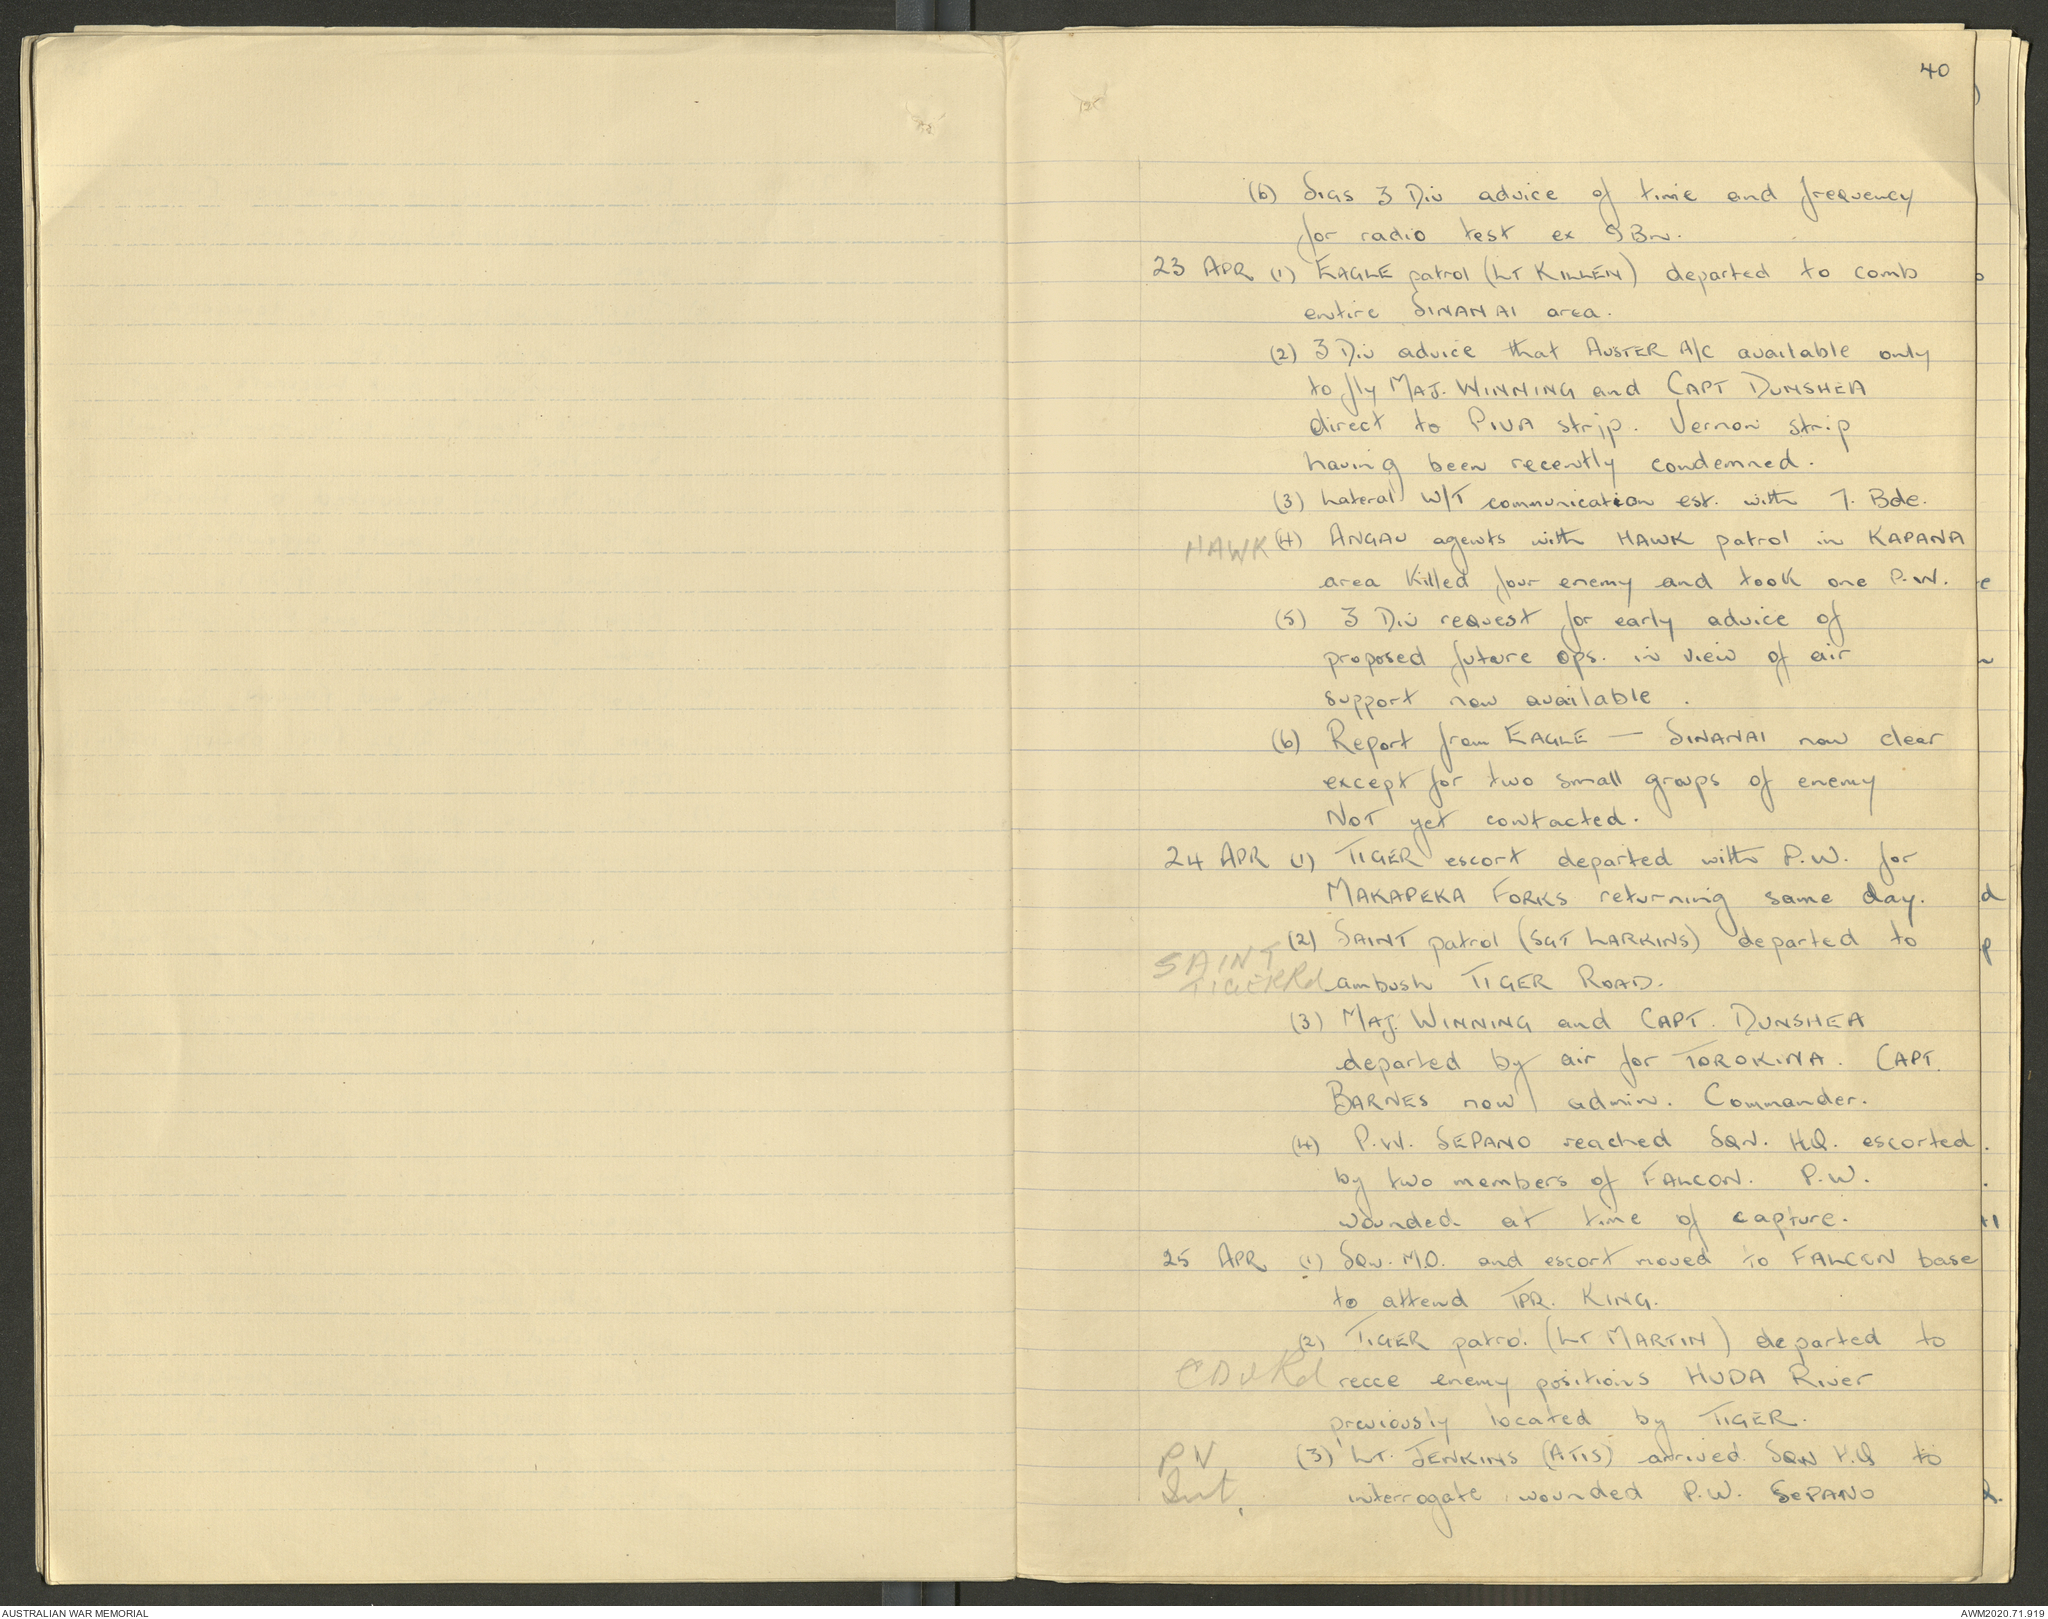 40
(6) Sigs 3 Div advice of time and frequency
for radio test ex 9 Bn.
23 APR (1) EAGLE patrol (LT KILLEN) departed to comb
entire SINANAI area.
(2) 3 Div advice that AUSTER A/C available only
to fly MAJ. WINNING and CAPT DUNSHEA
direct to PIVA strip. Vernon strip
having been recently condemned.
(3) Lateral W/T communication est. with 7. Bde.
HAWK (4) ANGAU agents with HAWK patrol in KAPANA
area killed four enemy and took one P.W.
(5) 3 Div request for early advice of
proposed future ops. in view of air
support now available.
(6) Report from EAGLE — SINANAI now clear
except for two small groups of enemy
NOT yet contacted.
24 APR (1) TIGER escort departed with P.W. for
MAKAPEKA FORKS returning same day.
(2) SAINT patrol (SGT LARKINS) departed to
SAINT
TIGER Rd ambush TIGER ROAD.
(3) MAJ. WINNING and CAPT. DUNSHEA
departed by air for TOROKINA. CAPT.
BARNES now admin. Commander.
(4) P.W. SEPANO reached SQN. H.Q. escorted
by two members of FALCON. P.W.
wounded at time of capture.
25 APR (1) SQN. M.O. and escort moved to FALCON base
to attend TPR. KING.
(2) TIGER patrol (LT MARTIN) departed to
recce enemy positions HUDA River
previously located by TIGER.
(3) LT. JENKINS (ATIS) arrived SQN H.Q to
interrogate wounded P.W. SEPANO
AUSTRALIAN WAR MEMORIAL
AWM2020.71.919